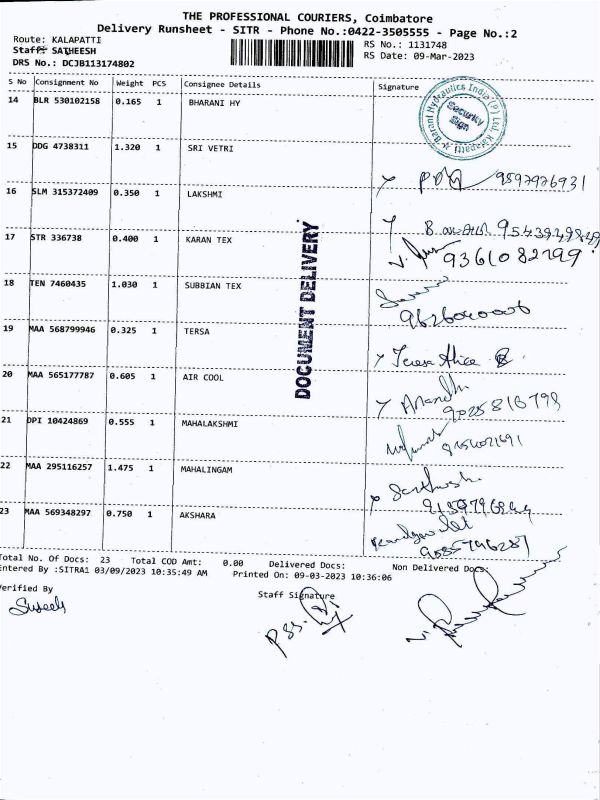 THE PROFESSIONAL COURIERS, Coimbatore
Delivery Runsheet - SITR - Phone No.:0422-3505555 - Page No.:2
Route: KALAPATTI
RS No.: 1131748
Staff: SATHEESH
RS Date: 09-Mar-2023
DRS No.: DCJB113174802
S No Consignment No Weight PCS Consignee Details Signature
14 BLR 530102158 0.165 1 BHARANI HY
Barani Hydraulics India (P) Ltd, Kalapatti
Security
Sign
15 DDG 4738311 1.320 1 SRI VETRI
9597976931
16 SLM 315372409 0.350 1 LAKSHMI
17 STR 336738 0.400 1 KARAN TEX
9361082199
18 TEN 7460435 1.030 1 SUBBIAN TEX
19 MAA 568799946 0.325 1 TERSA
Teresa Alice
20 MAA 565177787 0.605 1 AIR COOL
Anandhi
21 DPI 10424869 0.555 1 MAHALAKSHMI
22 MAA 295116257 1.475 1 MAHALINGAM
Santhosh
23 MAA 569348297 0.750 1 AKSHARA
DOCUMENT DELIVERY
Total No. Of Docs: 23 Total COD Amt: 0.00 Delivered Docs: Non Delivered Docs:
Entered By :SITRA1 03/09/2023 10:35:49 AM Printed On: 09-03-2023 10:36:06
Verified By
Staff Signature